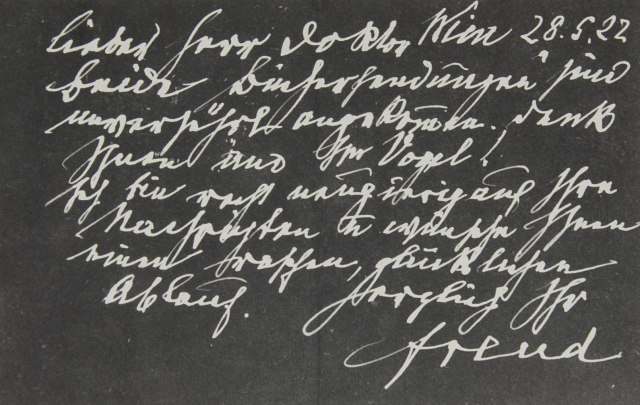 Lieber Herr Doktor Wien 28.5.22
Beide Büchersendungen sind
unversehrt angekom̅en. Dank
Ihnen und Vogel!
Ich bin recht neugierig auf Ihre
Nachrichten u wünsche Ihnen
einen raschen, glücklichen
Ablauf. Herzlich Ihr
Freud